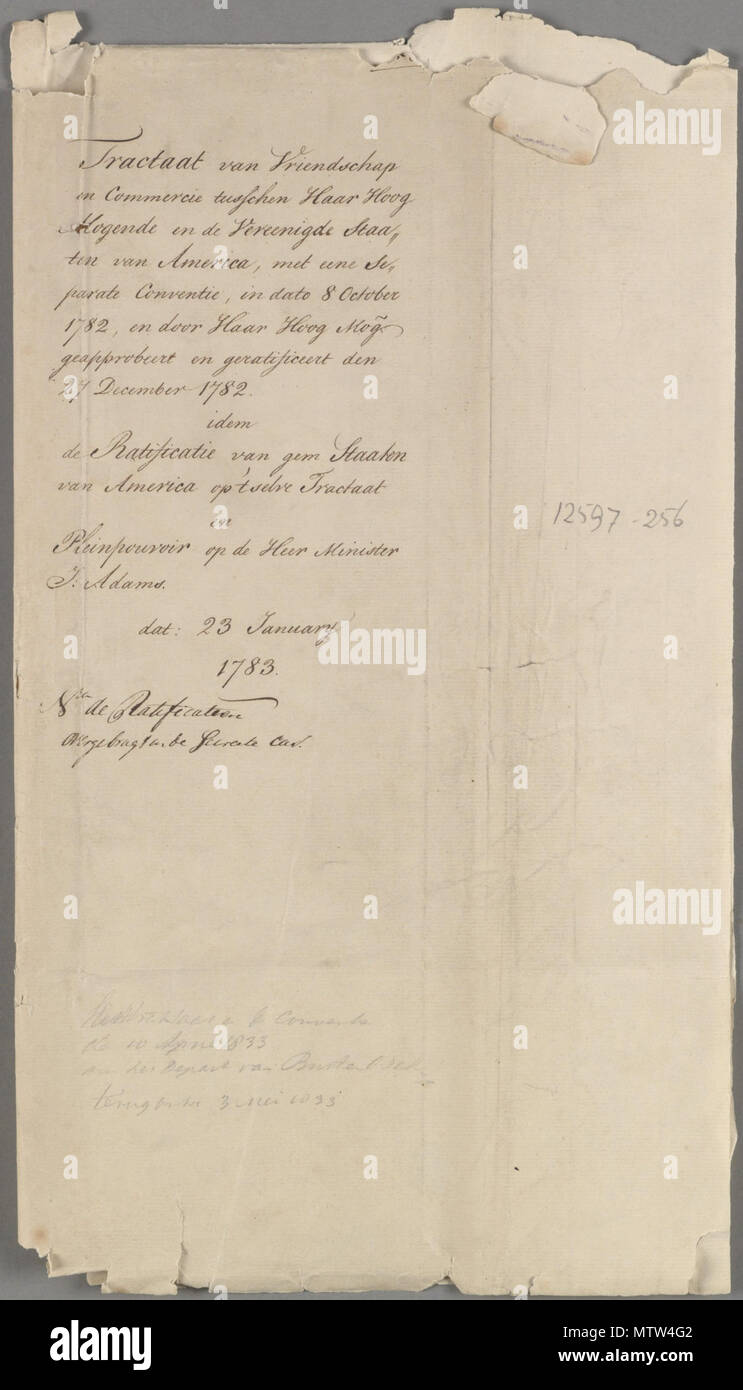 Tractaat van Vriendschap
en Commercie tusschen Haar Hoog
Mogende en de Vereenigde Staa„
ten van America, met eene Se„
parate Conventie, in dato 8 October
1782, en door Haar Hoog Mog:
geapprobeert en geratificeert den
27 December 1782.
idem
de Ratificatie van gem Staaten
van America op't selve Tractaat
en
Pleinpouvoir op de Heer Minister
J: Adams.
dat: 23 January
1783.
12597-256
de Ratificatien
overgebragt in de Secrete Cas.
10 April 1833
van
3 Mei 1833
alamy
alamy
alamy
alamy
Image ID: MTW4G2
www.alamy.com